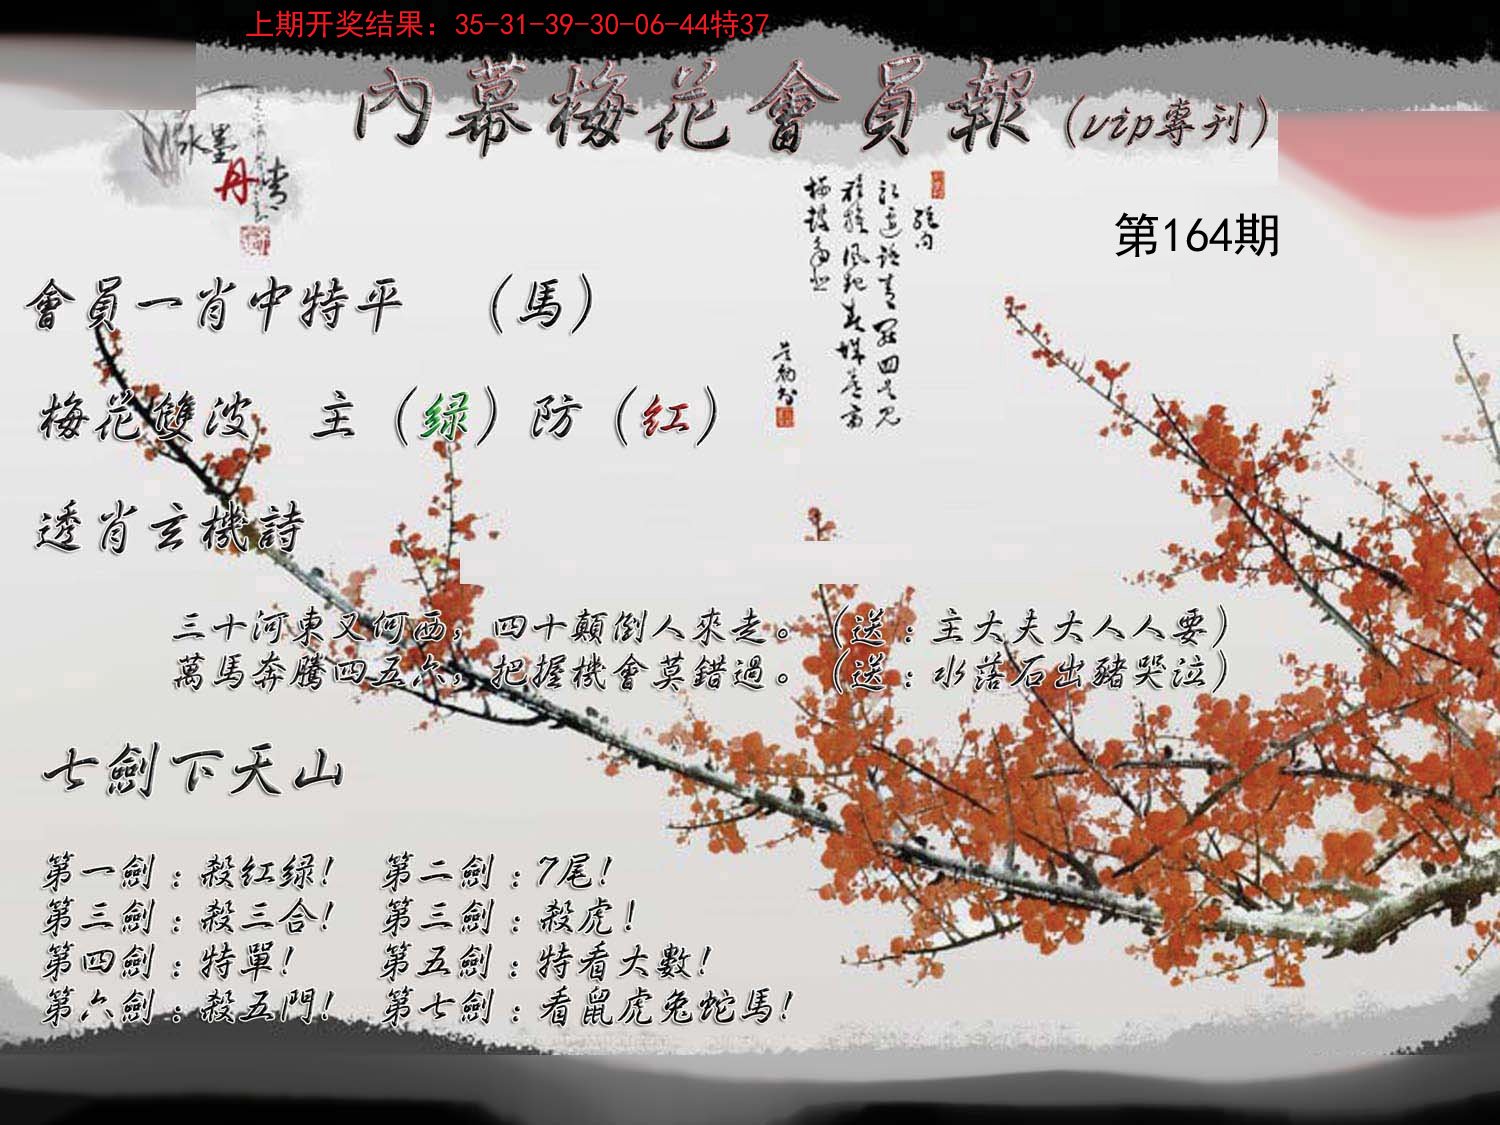 上期开奖结果：35-31-39-30-06-44特37
內幕梅花會員報(vip專刊)
水墨
丹青
第164期
會員一肖中特平　（馬）
梅花雙波　主（绿）防（红）
透肖玄機詩
三十河東又何西，四十顛倒人來走。（送：主大夫大人人要）
萬馬奔騰四五六，把握機會莫錯過。（送：水落石出豬哭泣）
七劍下天山
第一劍：殺红绿！　第二劍：7尾！
第三劍：殺三合！　第三劍：殺虎！
第四劍：特單！　第五劍：特看大數！
第六劍：殺五門！　第七劍：看鼠虎兔蛇馬！